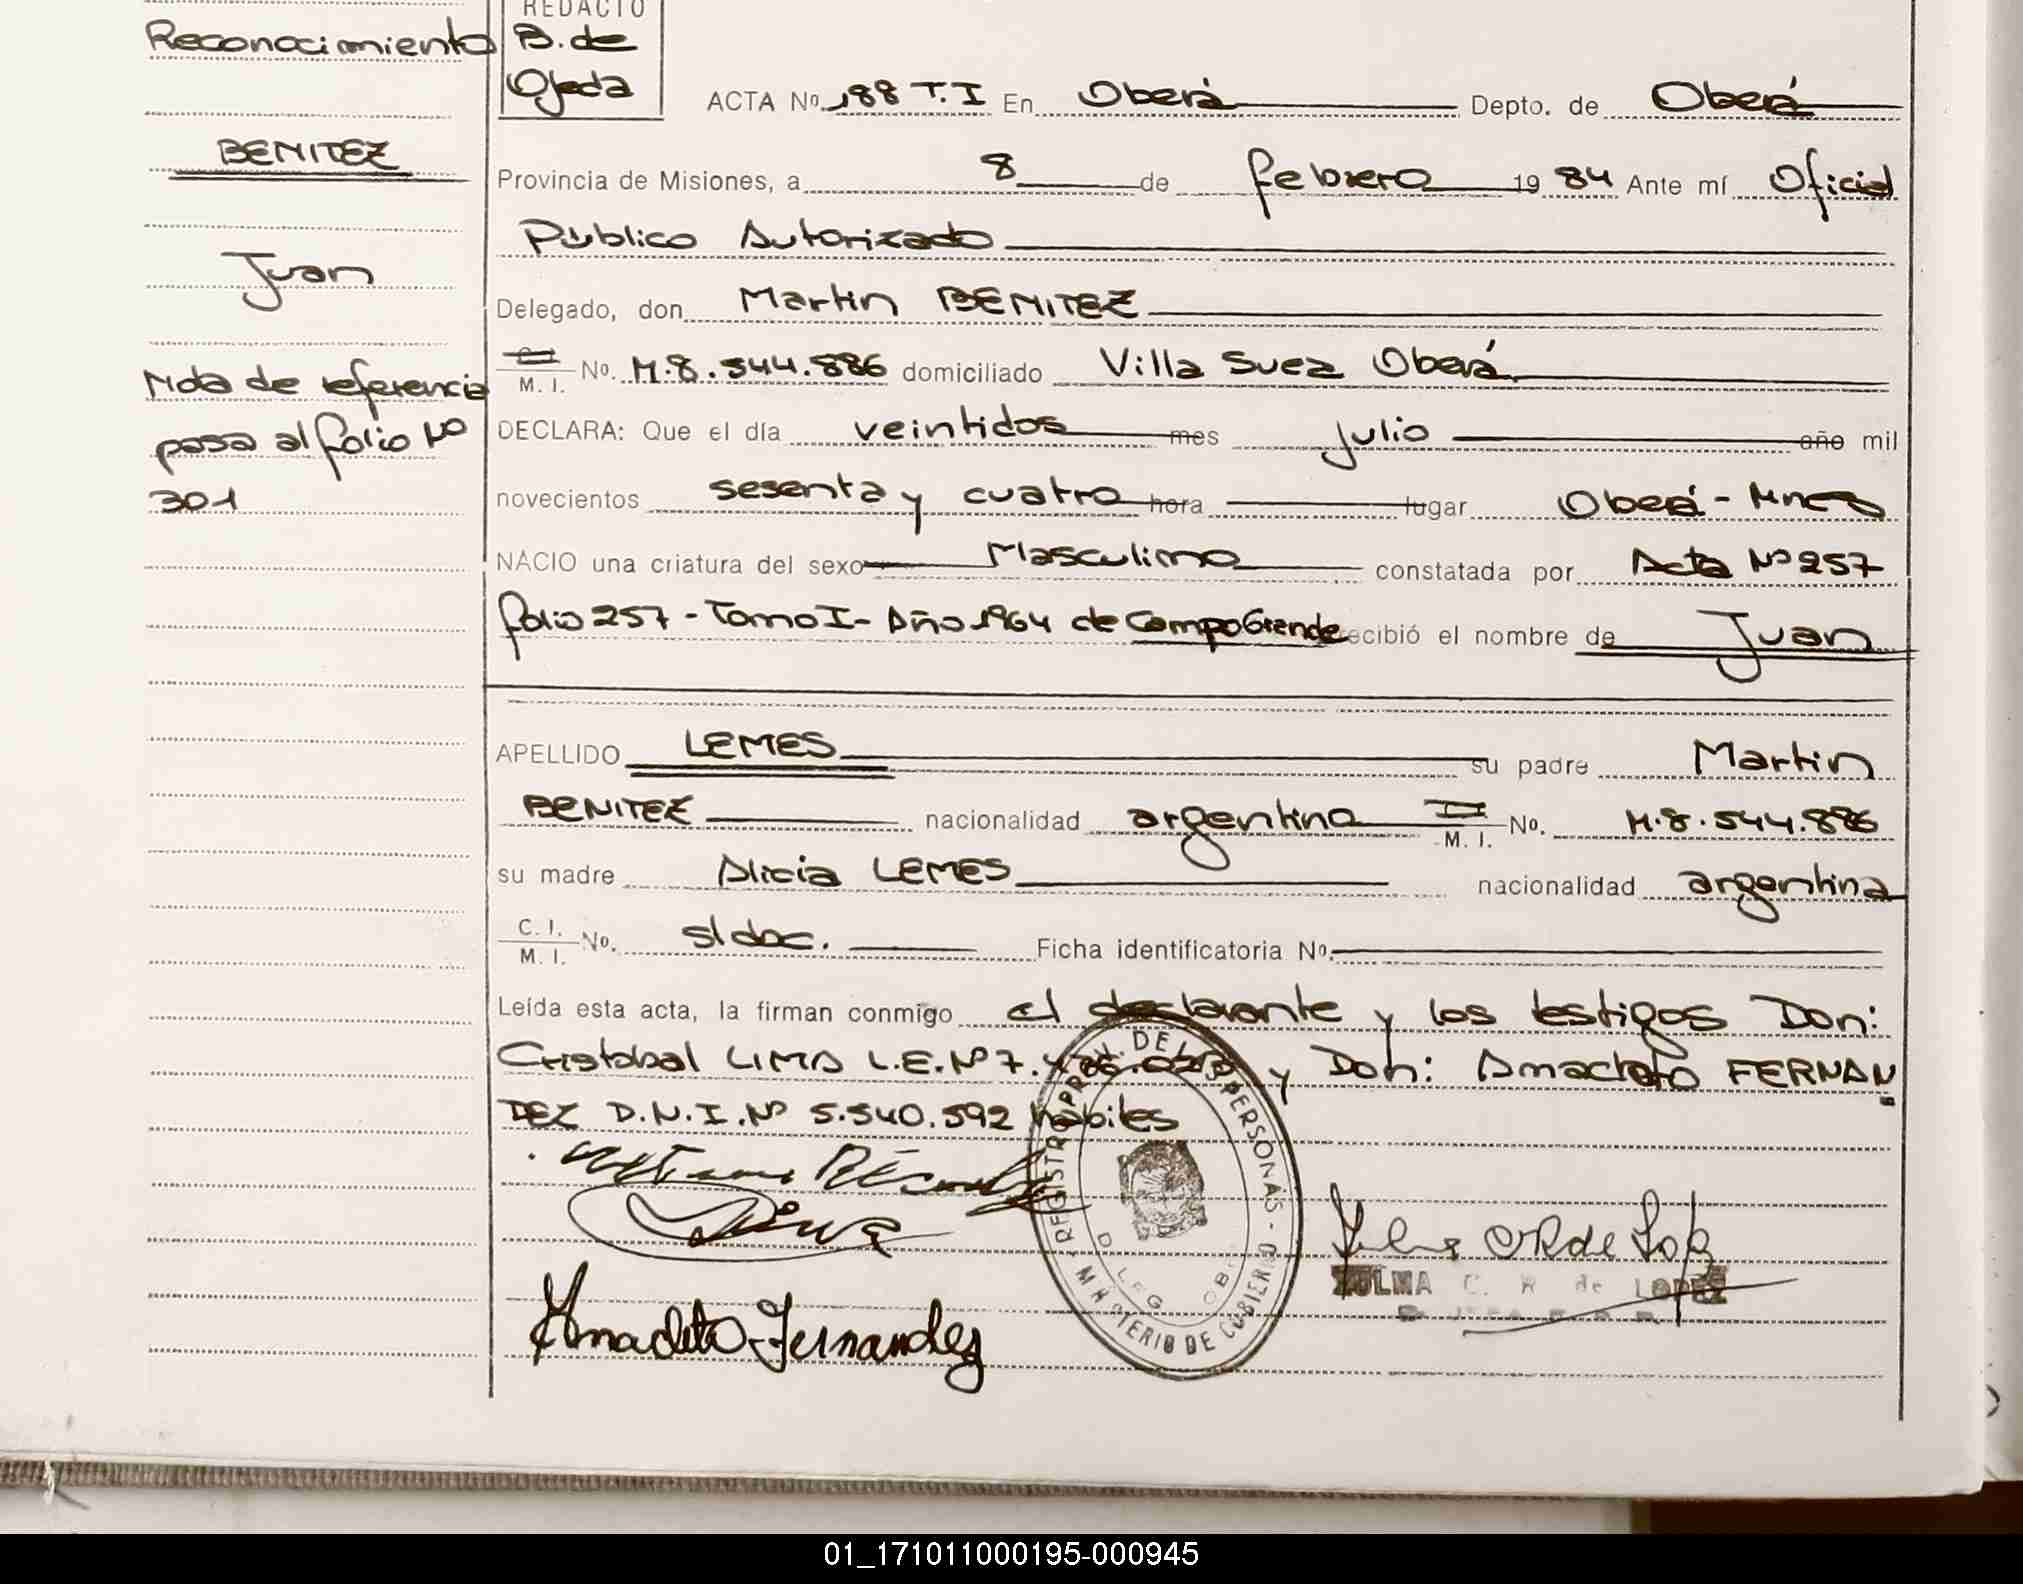 REDACTO
B. de
Ojeda
Reconocimiento
BENITEZ
Juan
Nota de referencia
pasa al folio Nº
301
ACTA Nº 188 T.I En Oberá Depto. de Oberá
Provincia de Misiones, a 8 de febrero 19 84 Ante mí Oficial
Público Autorizado
Delegado, don Martin BENITEZ
M. I. No. M.8.544.886 domiciliado Villa Suez Oberá
DECLARA: Que el día veintidos mes julio año mil
novecientos sesenta y cuatro hora lugar Oberá - Mnes
NACIO una criatura del sexo Masculino constatada por Acta Nº 257
folio 257 - Tomo I - Año 1964 de Campo Grande ecibió el nombre de Juan
APELLIDO LEMES su padre Martin
BENITEZ nacionalidad argentina M. I. No. M.8.544.886
su madre Alicia LEMES nacionalidad argentina
C. I. M. I. No. s/doc. Ficha identificatoria No.
Leída esta acta, la firman conmigo el declarante y los testigos Don:
Cristobal LIMA L.E.Nº 7. y Don: Amacleto FERNAN
DEZ D.N.I.Nº 5.540.592 hábiles
REGISTRO PROV. DE LAS PERSONAS - MINISTERIO DE GOBIERNO
Amacleto Fernandez
ZULMA C. R de LOPEZ
01_171011000195-000945